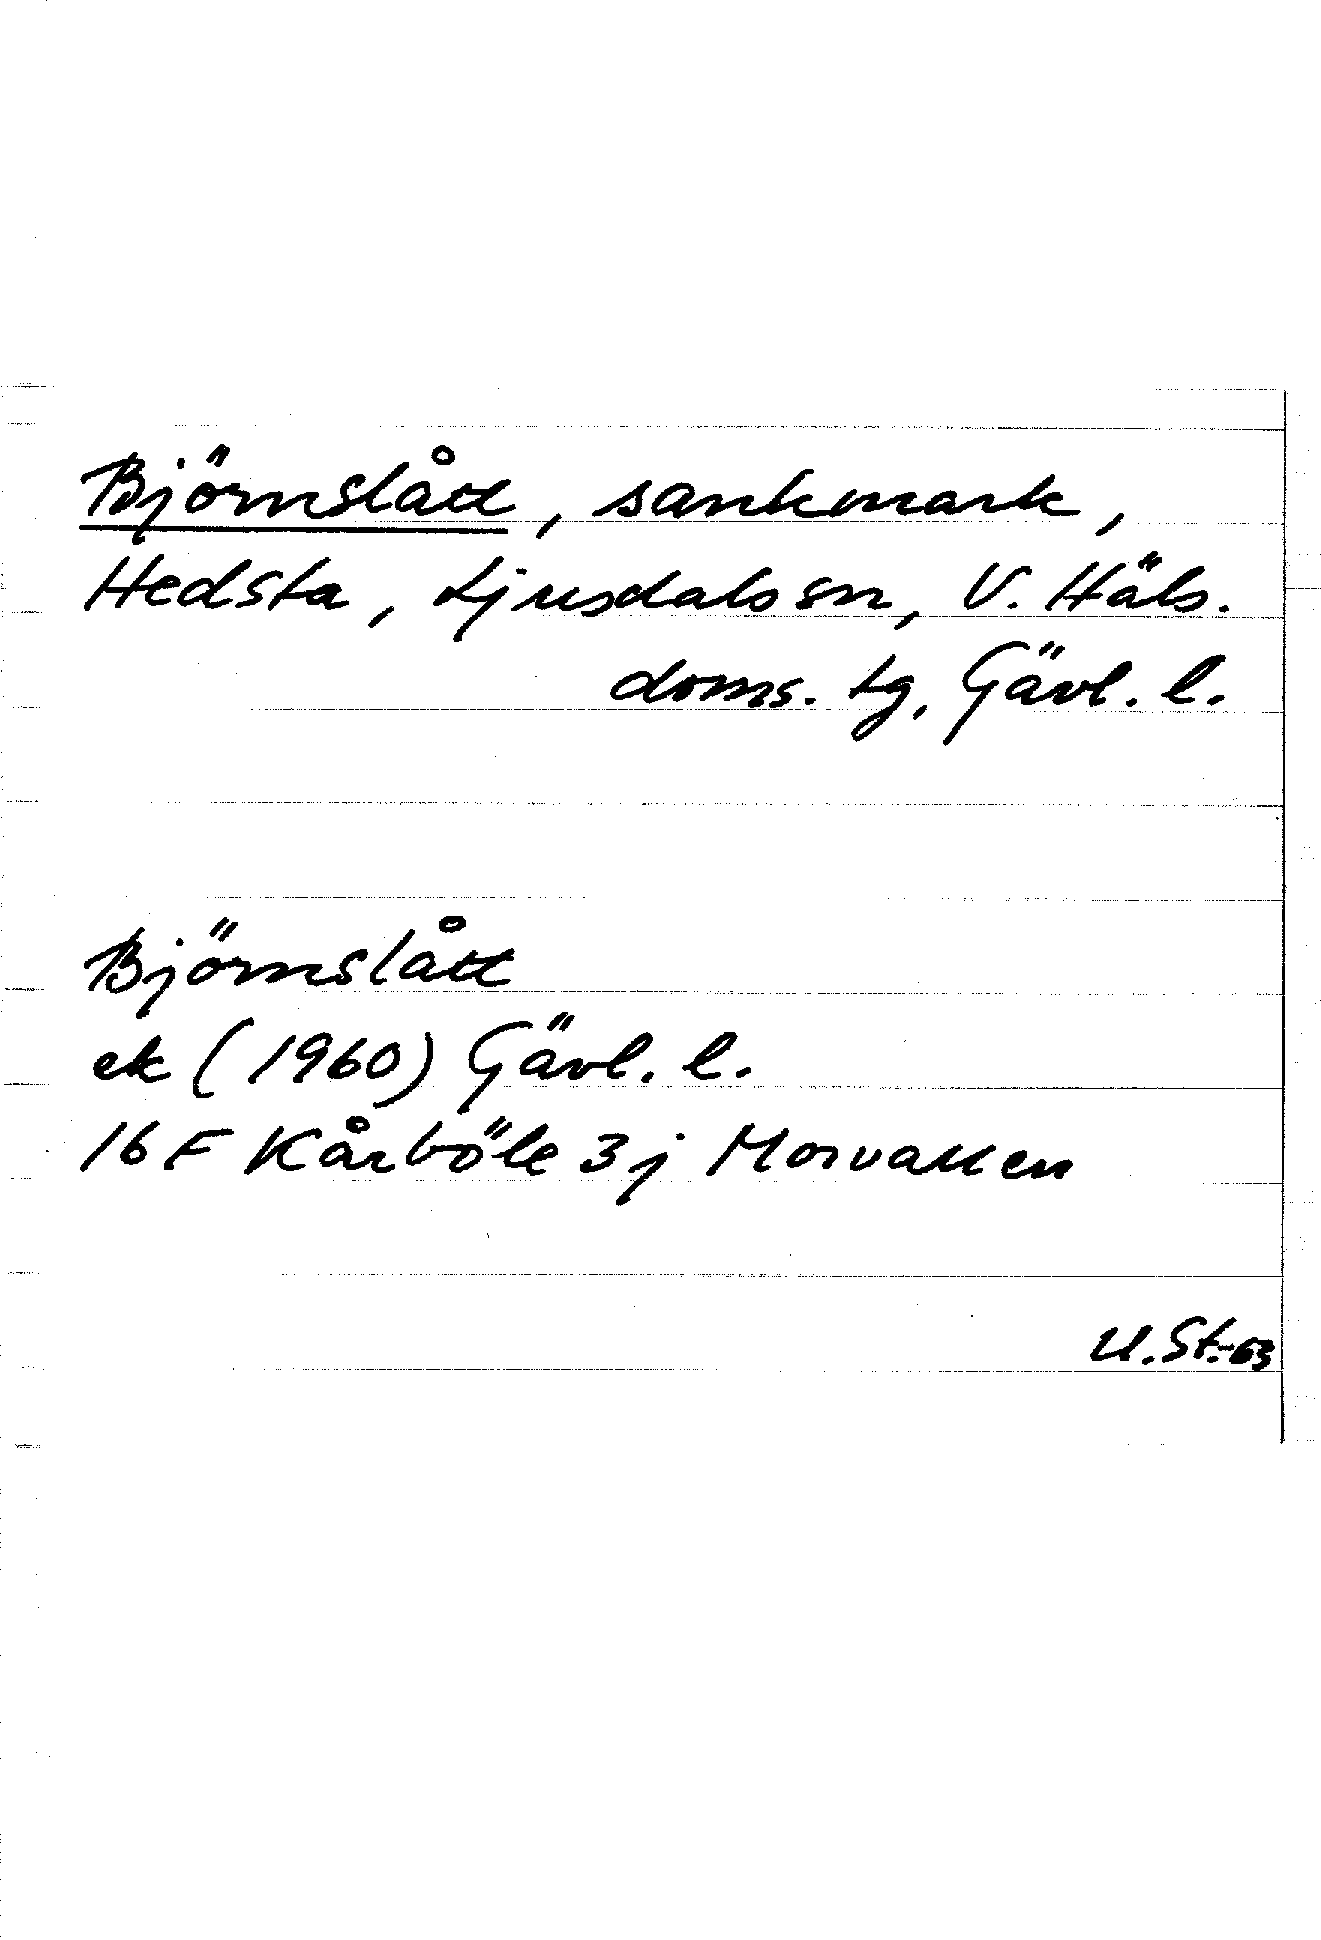 Björnslått, sankmark,
Hedsta, Ljusdals sn, V. Häls.
doms. tg, Gävl. l.
Björnslått
ek (1960) Gävl. l.
16 F Kårböle 3 j Morvallen
U.St.-63